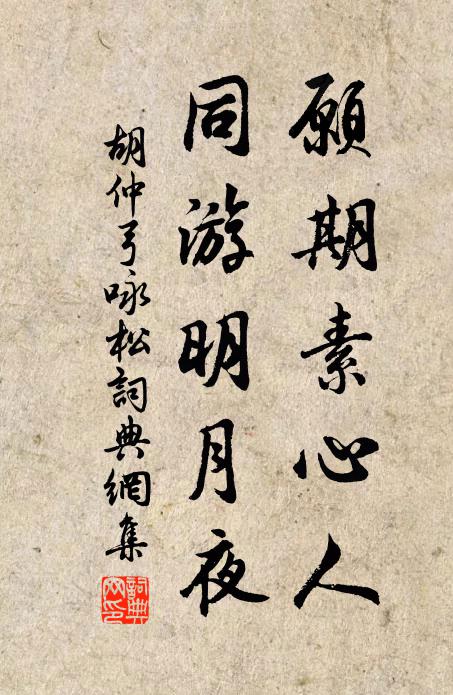 願期素心人
同游明月夜
胡仲弓咏松詞典網集
詞典网印